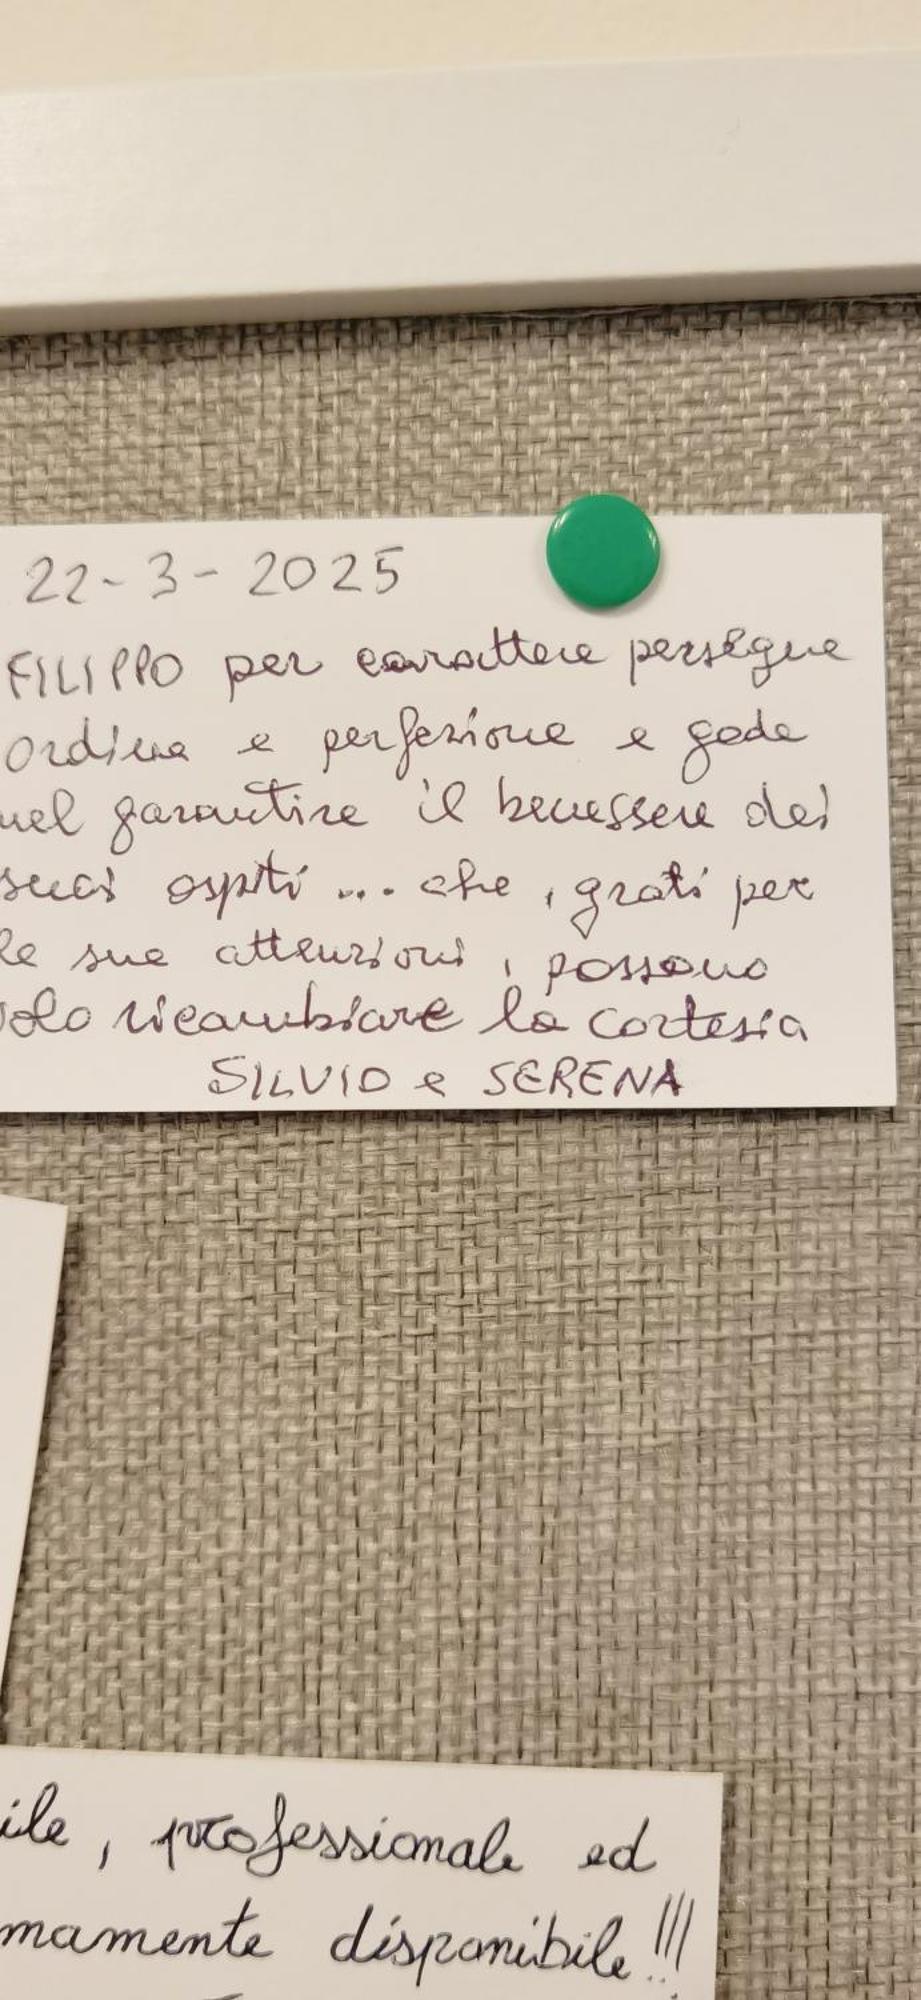 22-3-2025
FILIPPO per carattere persegue
ordine e perfezione e gode
nel garantire il benessere dei
suoi ospiti... che, grati per
le sue attenzioni, possono
solo ricambiare la cortesia
SILVIO e SERENA
ile, professionale ed
mamente disponibile!!!